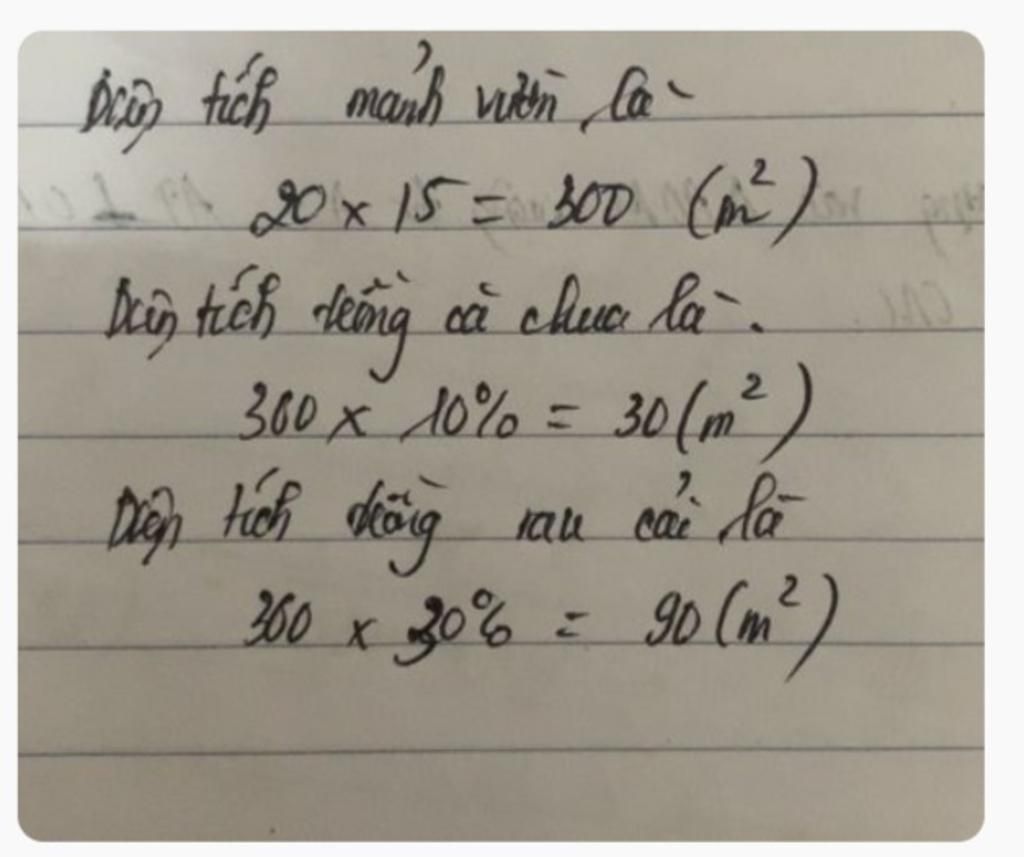 Diện tích mảnh vườn là
20 x 15 = 300 (m²)
Diện tích trồng cà chua là.
300 x 10% = 30 (m²)
Diện tích trồng rau cải là
300 x 30% = 90 (m²)